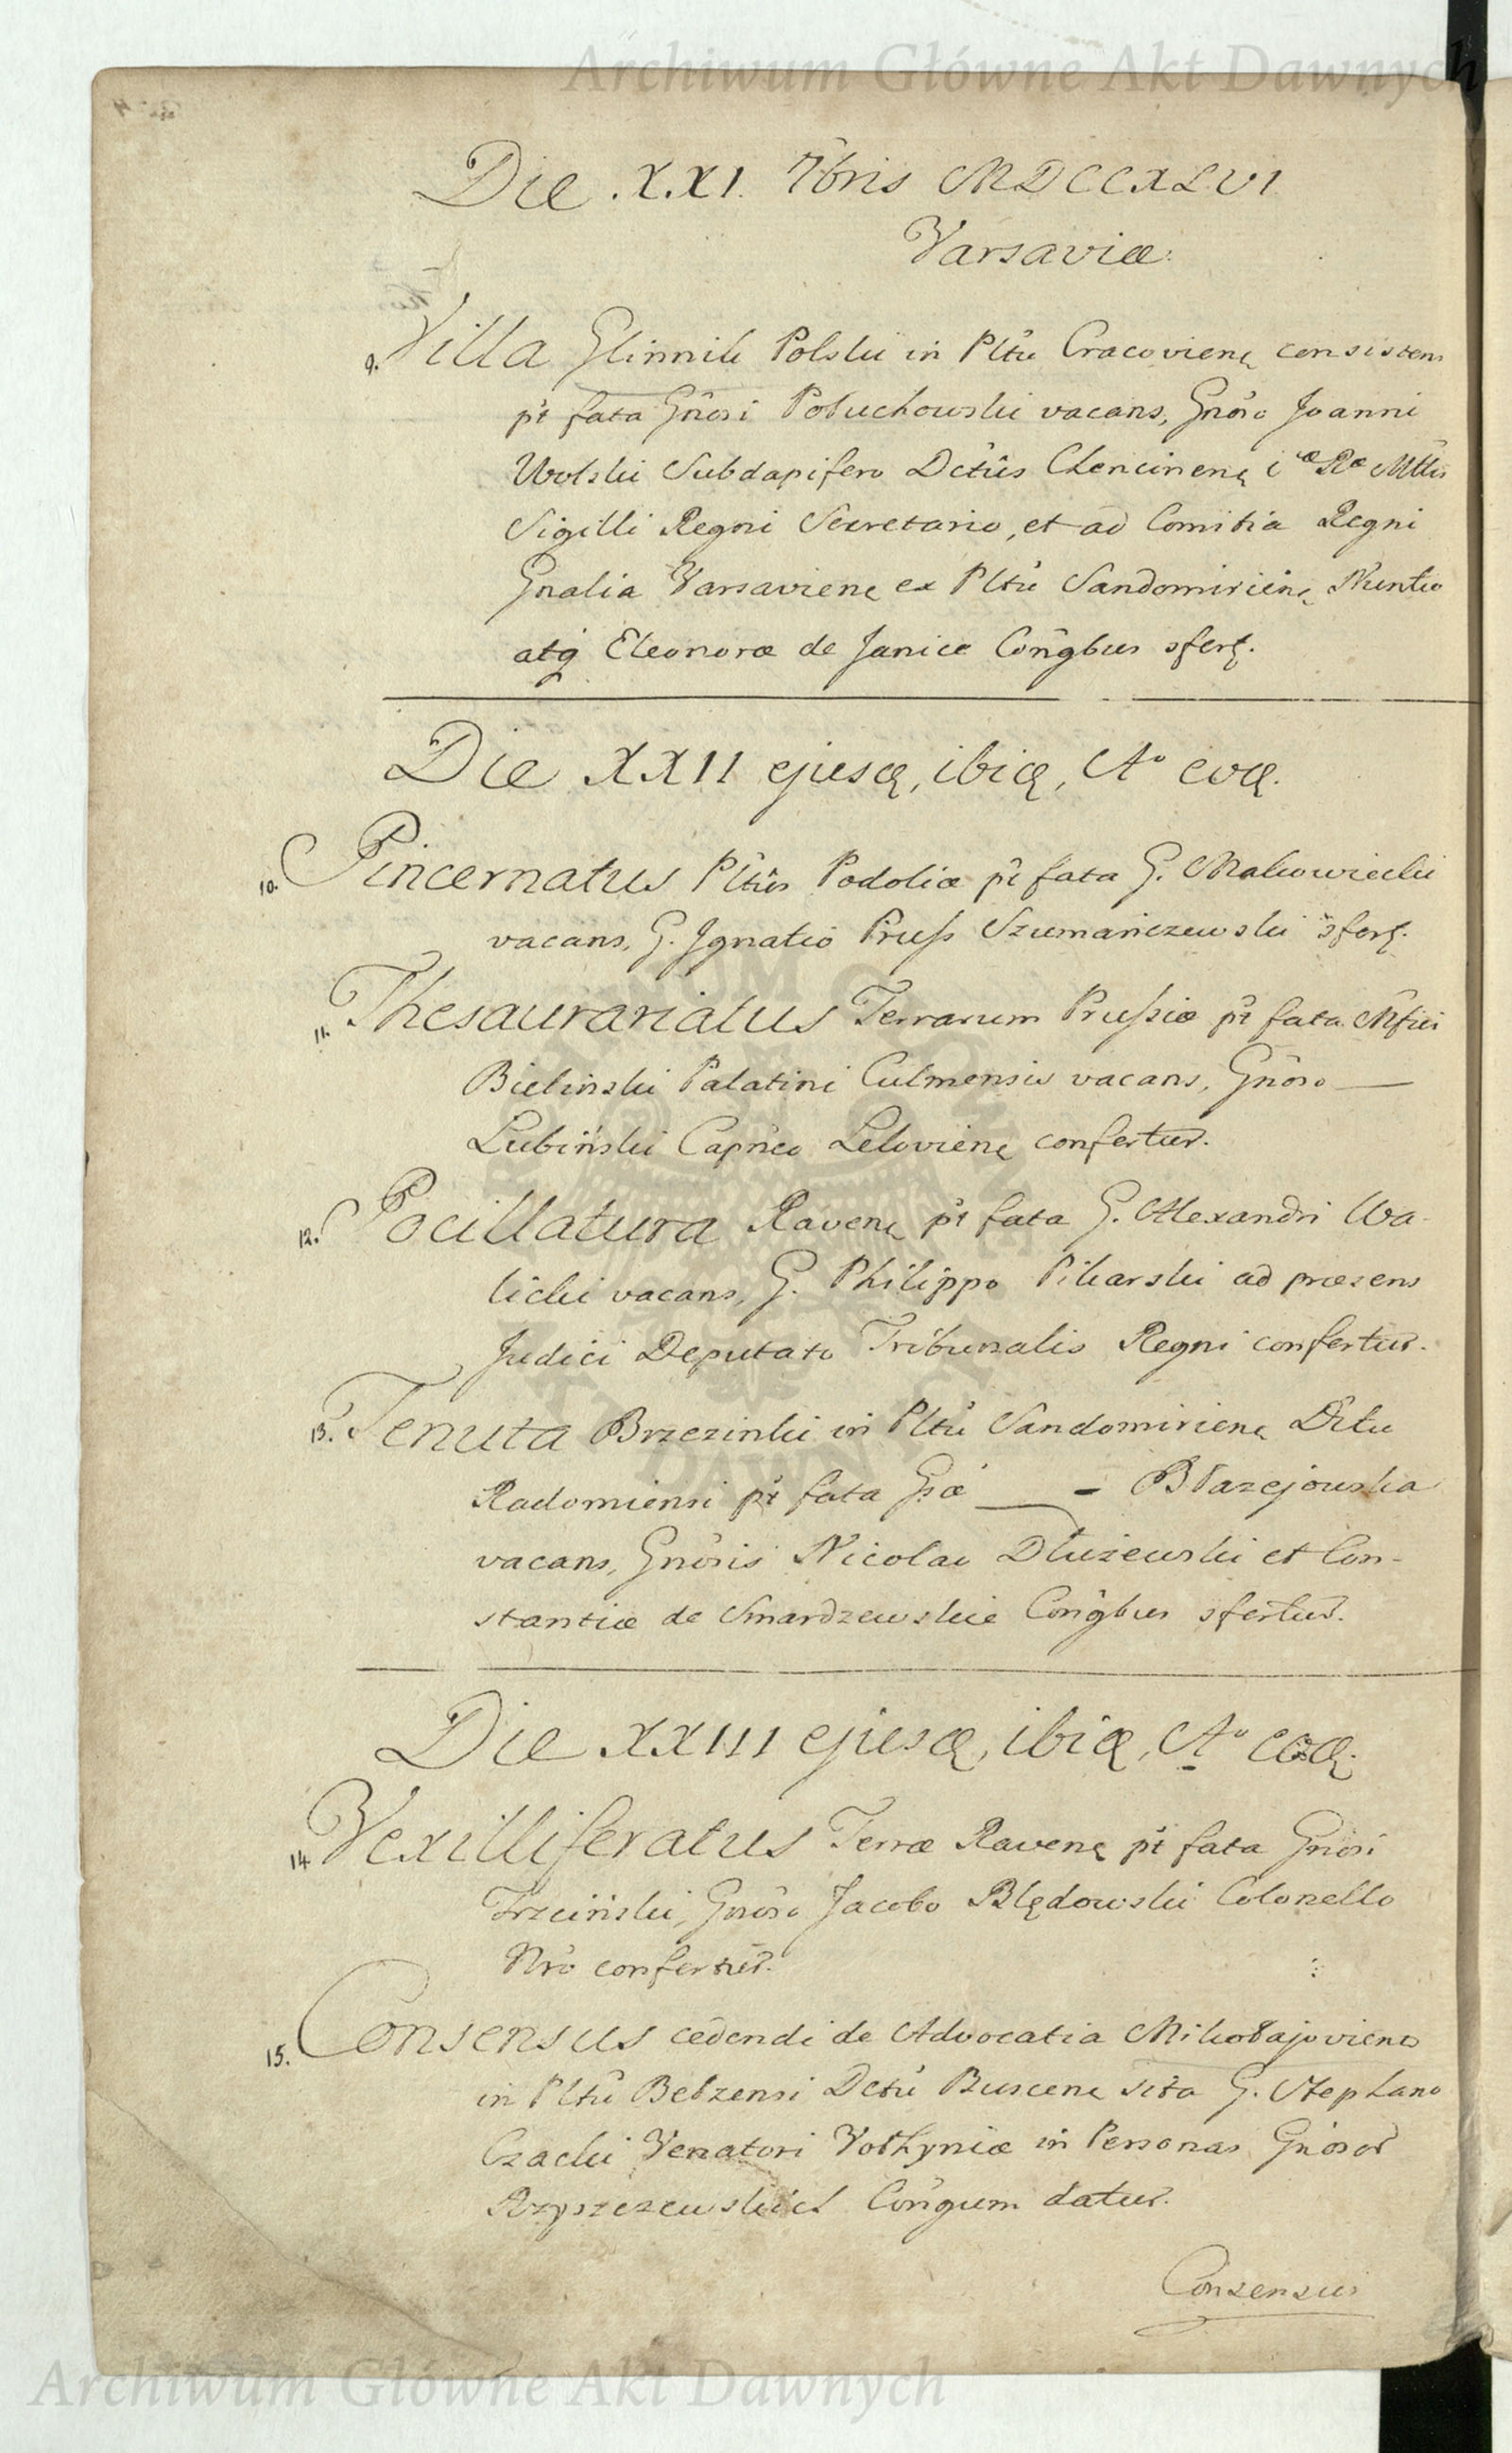 Archiwum Główne Akt Dawnych
Die .X.XI. 7bris MDCCXLVI
Varsaviæ.
9. Villa Glinnik Polski in Pltû Cracovienę consistens
pt fata Gnôsi Połuchowski vacans, Gnôso Joanni
Wolski Subdapifero Dctûs Chencinenę
Sigilli Regni Secretario, et ad Comitia Regni
Gnalia Varsavienę ex Pltû Sandomirienę Nuntio
atq Eleonoræ de Janice Congbus sferę.
Die XXII ejusdę, ibidę, Aº eodę.
10. Pincernatus Pltûs Podoliæ pt fata G. Makowiecki
vacans, G. Ignatio Pruss Szumańczewski sferę.
11. Thesaurariatus Terrarum Prussiæ pt fata Mfici
Bielinski Palatini Culmensis vacans, Gnôso —
Lubiński Capneo Lelovienę confertur.
12. Pocillatura Ravenę pt fata G. Alexandri Wa-
licki vacans, G. Philippo Pikarski ad præsens
Judici Deputato Tribunalis Regni confertur.
13. Tenuta Brzezinki in Pltû Sandomirienę Dctu
Radomiensi pt fata Gsæ — Błazejowska
vacans, Gnôsis Nicolao Dłużewski et Con-
stantiæ de Smardzewskie Congbus sfertur.
Die XXIII ejusdę, ibidę, Aº eodę.
14 Vexilliferatus Terræ Ravenę pt fata Gnosi
Trzciński, Gnôso Jacobo Blędowski Colonello
Nrô confertur.
15. Consensus cedendi de Advocatia Mikołajoviens
in Pltû Bełzensi Dctû Buscenę sita G. Stephano
Czacki Venatori Vołhyniæ in Personas Gnosor
Rzyszczewskich Congum datur.
Consensus
Archiwum Główne Akt Dawnych